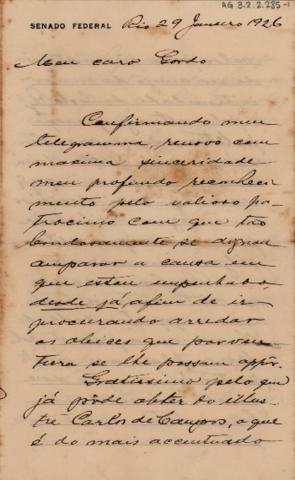 AG 3.2.2.285-1
SENADO FEDERAL Rio 29 Janeiro 1926
Meu caro Gordo
Confirmando meu
telegramma, renovo com
maxima sinceridade
meu profundo reconheci
mento pelo valioso pa-
trocinio com que tão
bondosamente se dignou
amparar a causa em
que estou empenhado,
desde já, afim de ir
procurando arredar
os obices que porven
tura se lhe possam oppôr.
Gratissimo pelo que
já pôde obter do illus-
tre Carlos de Campos, o que
é do mais accentuado